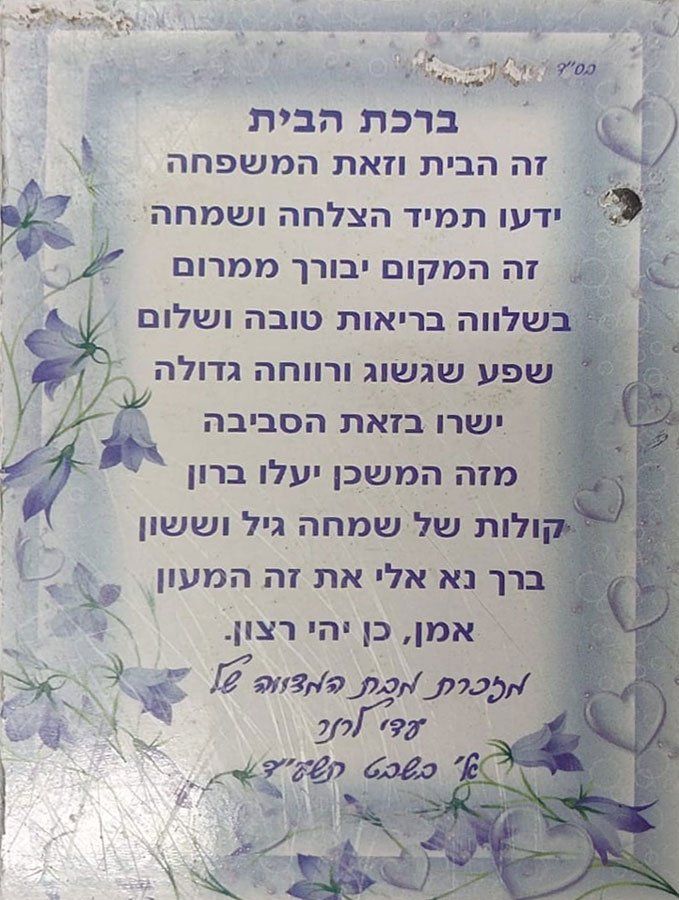 בס"ד
ברכת הבית
זה הבית וזאת המשפחה
ידעו תמיד הצלחה ושמחה
זה המקום יבורך ממרום
בשלווה בריאות טובה ושלום
שפע שגשוג ורווחה גדולה
ישרו בזאת הסביבה
מזה המשכן יעלו ברון
קולות של שמחה גיל וששון
ברך נא אלי את זה המעון
אמן, כן יהי רצון.
מזכרת מבת המצווה של
עדי לרנר
א' בשבט תשע"ד